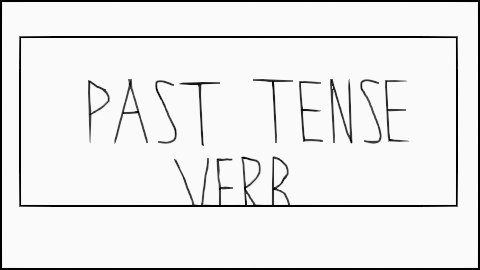 PAST TENSE
VERB